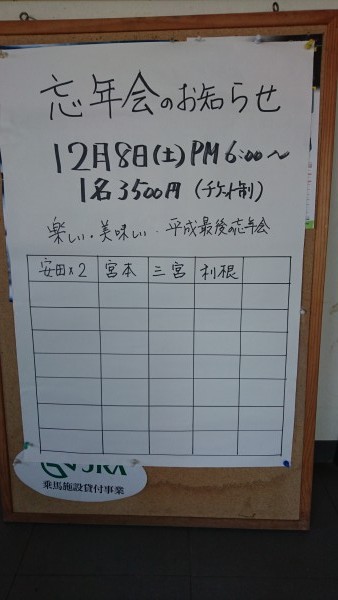 忘年会のお知らせ
12月8日(土)PM 6:00〜
1名3500円(チケット制)
楽しい・美味しい・平成最後の忘年会
安田×2 宮本 三宮 利根
乗馬施設貸付事業